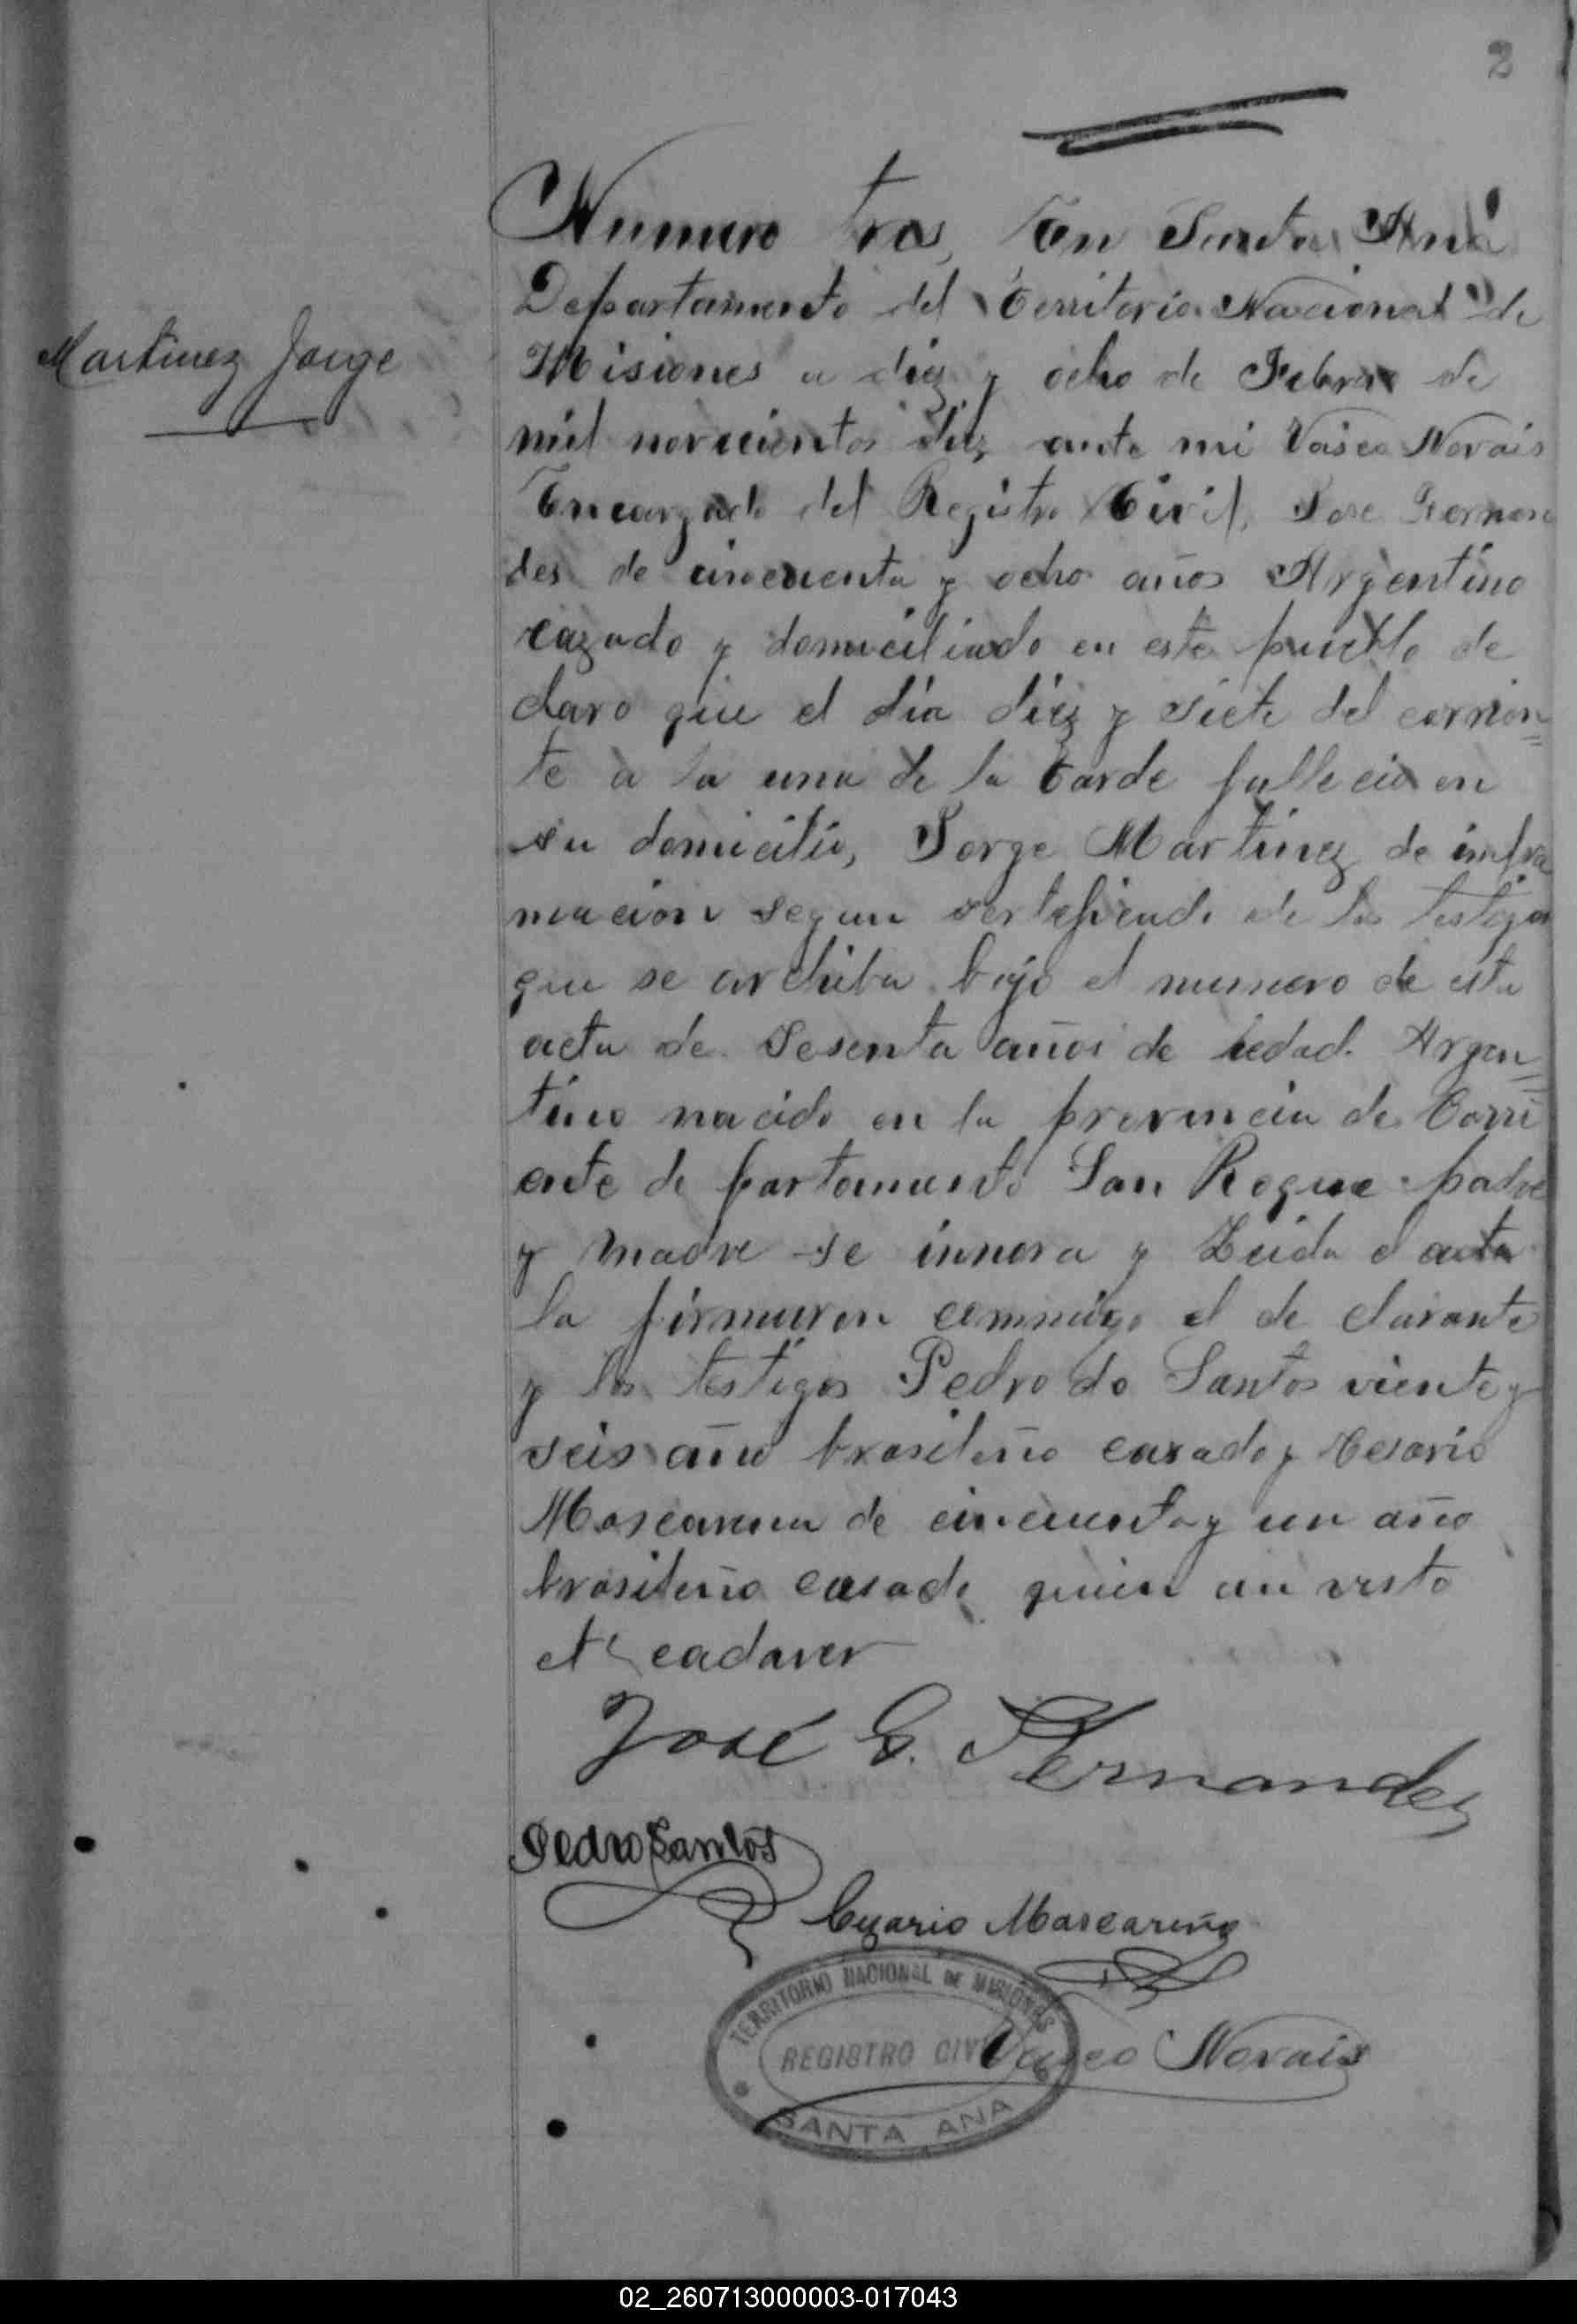 2
Numero tres, En Santa Ana
Departamento del Territorio Nacional de
Martinez Jorge
Misiones a diez y ocho de Febrero de
mil novecientos diez, ante mi Vasco Novais
Encargado del Registro Civil, Jose Fernan
des de cincuenta y ocho años Argentino
cazado y domiciliado en este pueblo de
claro que el dia diez y siete del corrien=
te a la una de la tarde fallecio en
su domicilio, Jorge Martinez de
macion segun de los testigos
que se archiba bajo el numero de esta
acta de Sesenta años de hedad. Argen=
tino nacido en la provincia de Corri
ente de partamento San Roque padre
y madre se innora y Leida el acta
la firmaron commigo el de clarante
y los testigos Pedro do Santos viente y
seis año brasileño casado y Cesario
Mascarena de cincuenta y un año
brasileño casado quien an visto
el cadaver
José G. Fernandez
Pedro Santos
Cezario Mascareño
TERRITORIO NACIONAL DE MISIONES
REGISTRO CIVIL
Vasco Novais
SANTA ANA
02_260713000003-017043